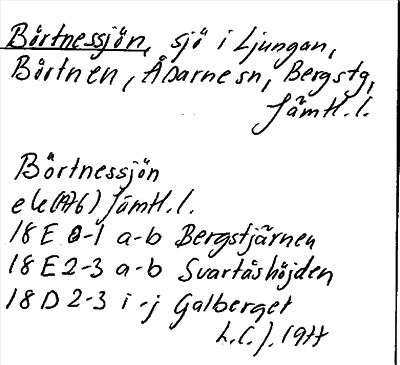 Börtnessjön, sjö i Ljungan,
Börtnen, Åsarne sn, Bergs tg,
Jämtl. l.
Börtnessjön
ek (1976) Jämtl. l.
18 E 0-1 a-b Bergstjärnen
18 E 2-3 a-b Svartåshöjden
18 D 2-3 i-j Galberget
L.C.J. 1977